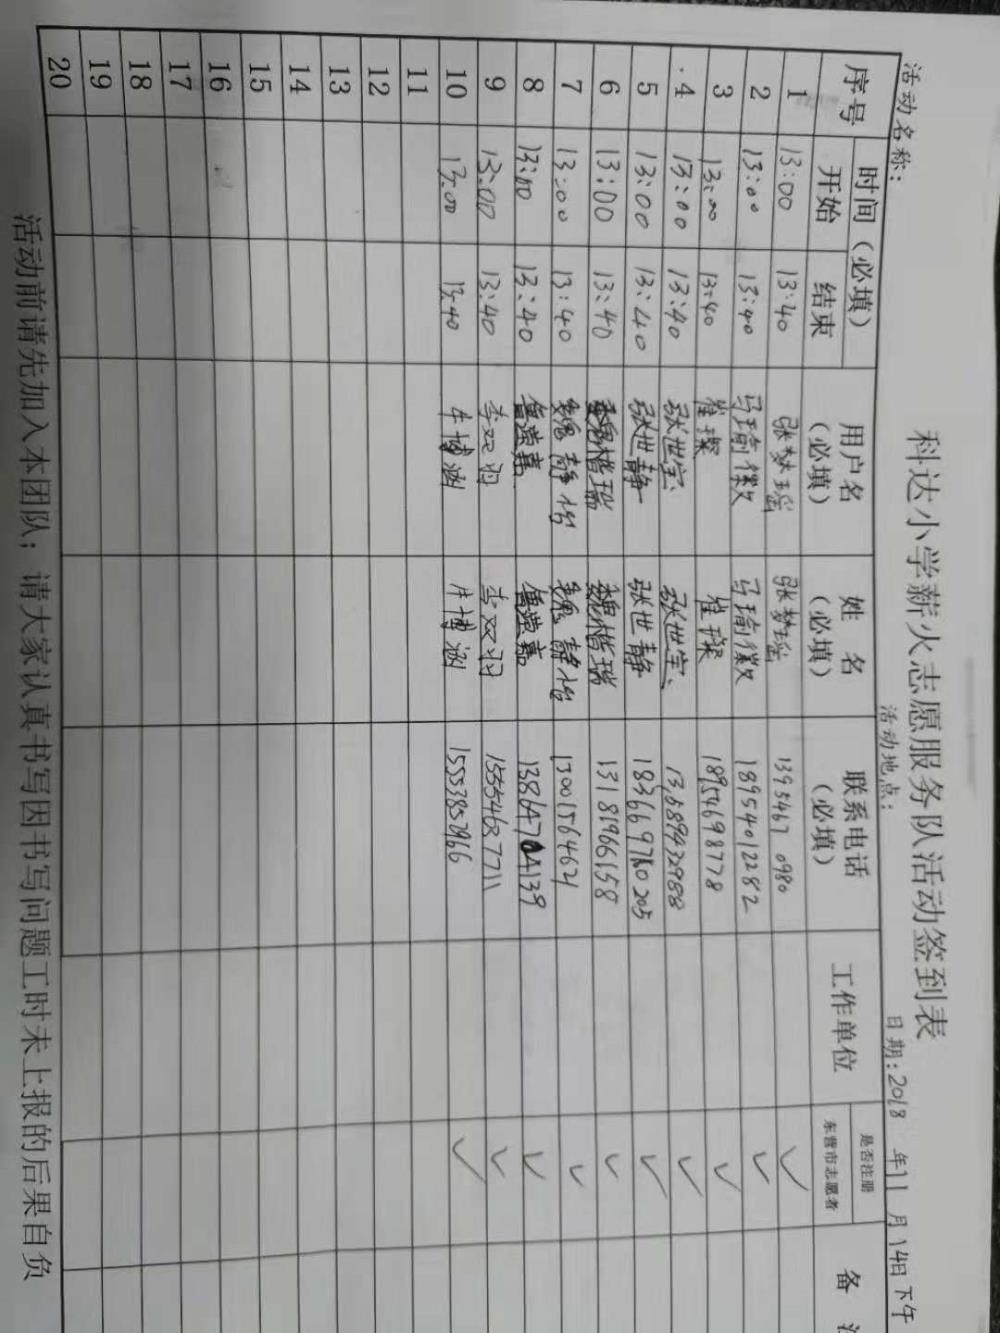 科达小学薪火志愿服务队活动签到表
活动名称： 活动地点： 日期：2018 年11 月14日下午
序号 时间（必填） 用户名（必填） 姓 名（必填） 联系电话（必填） 工作单位 是否注册东营市志愿者 备
开始 结束
1 13:00 13:40 张梦瑶 张梦瑶 13954670980 ✓
2 13:00 13:40 马瑜徽 马瑜徽 18954012282 ✓
3 13:00 13:40 崔璨 崔璨 18954698778 ✓
4 13:00 13:40 张世宝 张世宝 13589432988 ✓
5 13:00 13:40 张世静 张世静 ✓
6 13:00 13:40 魏楷瑞 魏楷瑞 13181966158 ✓
7 13:00 13:40 魏静怡 魏静怡 13001564621 ✓
8 13:00 13:40 ✓
9 13:00 13:40 李双羽 李双羽 15554637711 ✓
10 13:00 13:40 牛博涵 牛博涵 ✓
11
12
13
14
15
16
17
18
19
20
活动前请先加入本团队；请大家认真书写因书写问题工时未上报的后果自负